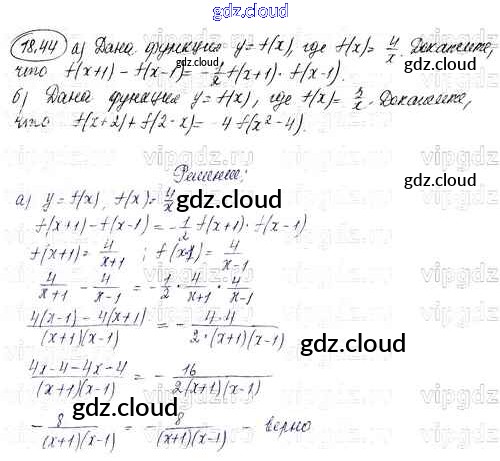 gdz.cloud
18.44 а) Дана функция y=f(x), где f(x)= 4/x. Докажите,
что f(x+1) - f(x-1) = -1/2 f(x+1) · f(x-1).
б) Дана функция y=f(x), где f(x)= 4/x. Докажите,
что f(x+2) + f(2-x) = -4 f(x²-4).
Решение:
а) y=f(x), f(x)= 4/x
gdz.cloud
f(x+1) - f(x-1) = -1/2 f(x+1) · f(x-1)
f(x+1) = 4/(x+1) ; f(x-1) = 4/(x-1)
4/(x+1) - 4/(x-1) = -1/2 · 4/(x+1) · 4/(x-1)
(4(x-1) - 4(x+1))/((x+1)(x-1)) = - (4·4)/(2·(x+1)(x-1))
gdz.cloud
(4x-4-4x-4)/((x+1)(x-1)) = - 16/(2(x+1)(x-1))
gdz.cloud
- 8/((x+1)(x-1)) = - 8/((x+1)(x-1)) - верно
vipgdz.ru